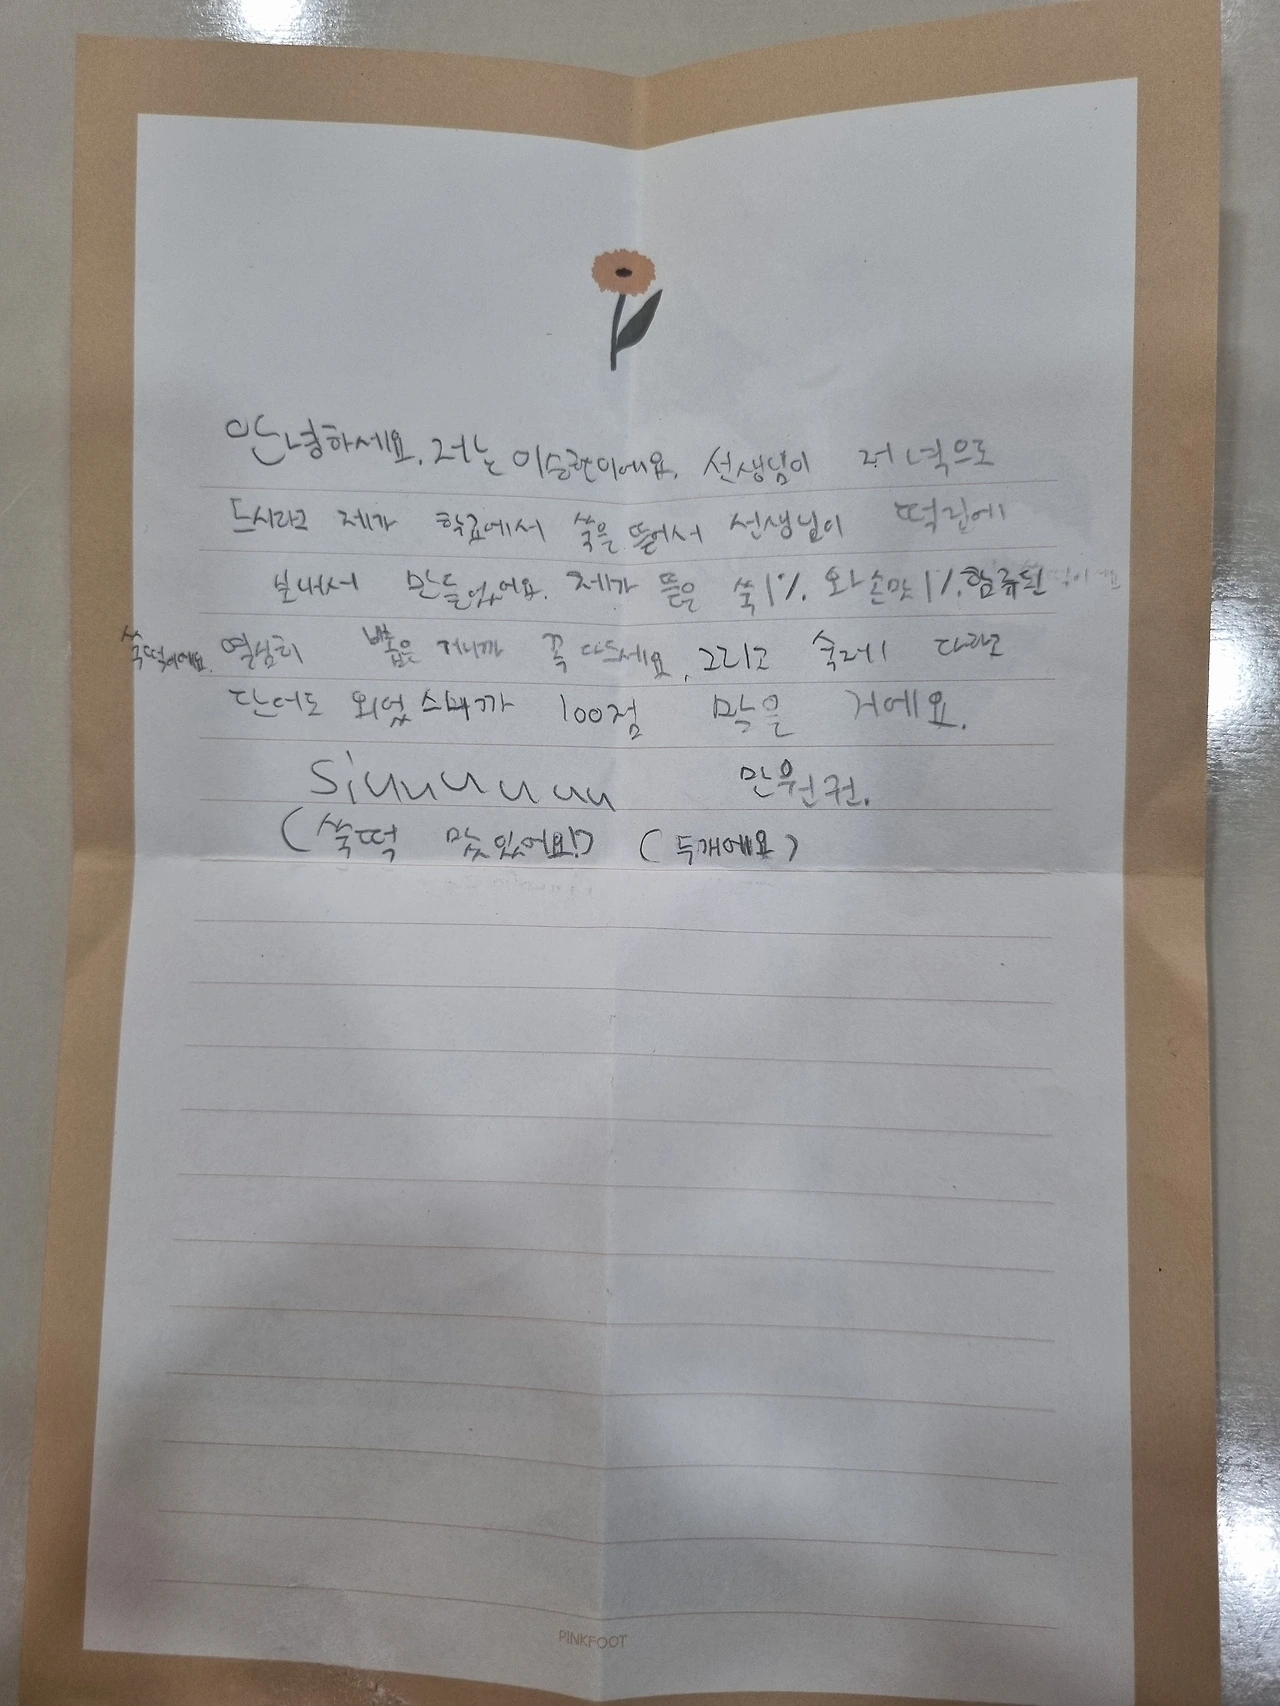 안녕하세요. 저는 이승현이에요. 선생님이 저녁으로
드시라고 제가 학교에서 쑥을 뜯어서 선생님이 떡집에
보내서 만들었어요. 제가 뜯은 쑥 1%와 손맛 1% 함류된
쑥떡이에요. 열심히 뽑은 거니까 꼭 다드세요. 그리고 숙제 다라고
단어도 외었스니까 100점 막을 거에요.
Siuuuuuuu 만원권.
(쑥떡 맛있어요!) (두개에요)
PINKFOOT